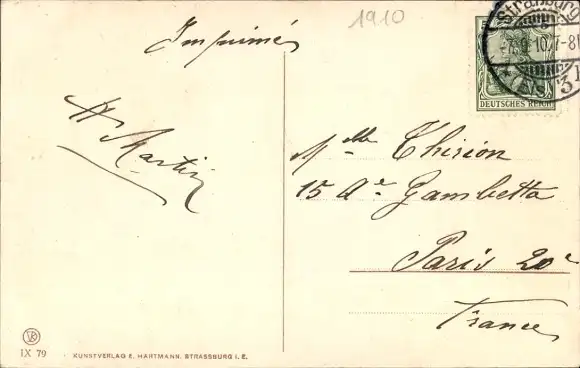 1910
Imprimés
Strassburg
7.9.10. 7-8
Els. 31
DEUTSCHES REICH
H Martin
Mlle Thirion
15 Ae Gambetta
Paris 20e
France
IX 79
KUNSTVERLAG E. HARTMANN. STRASSBURG I. E.